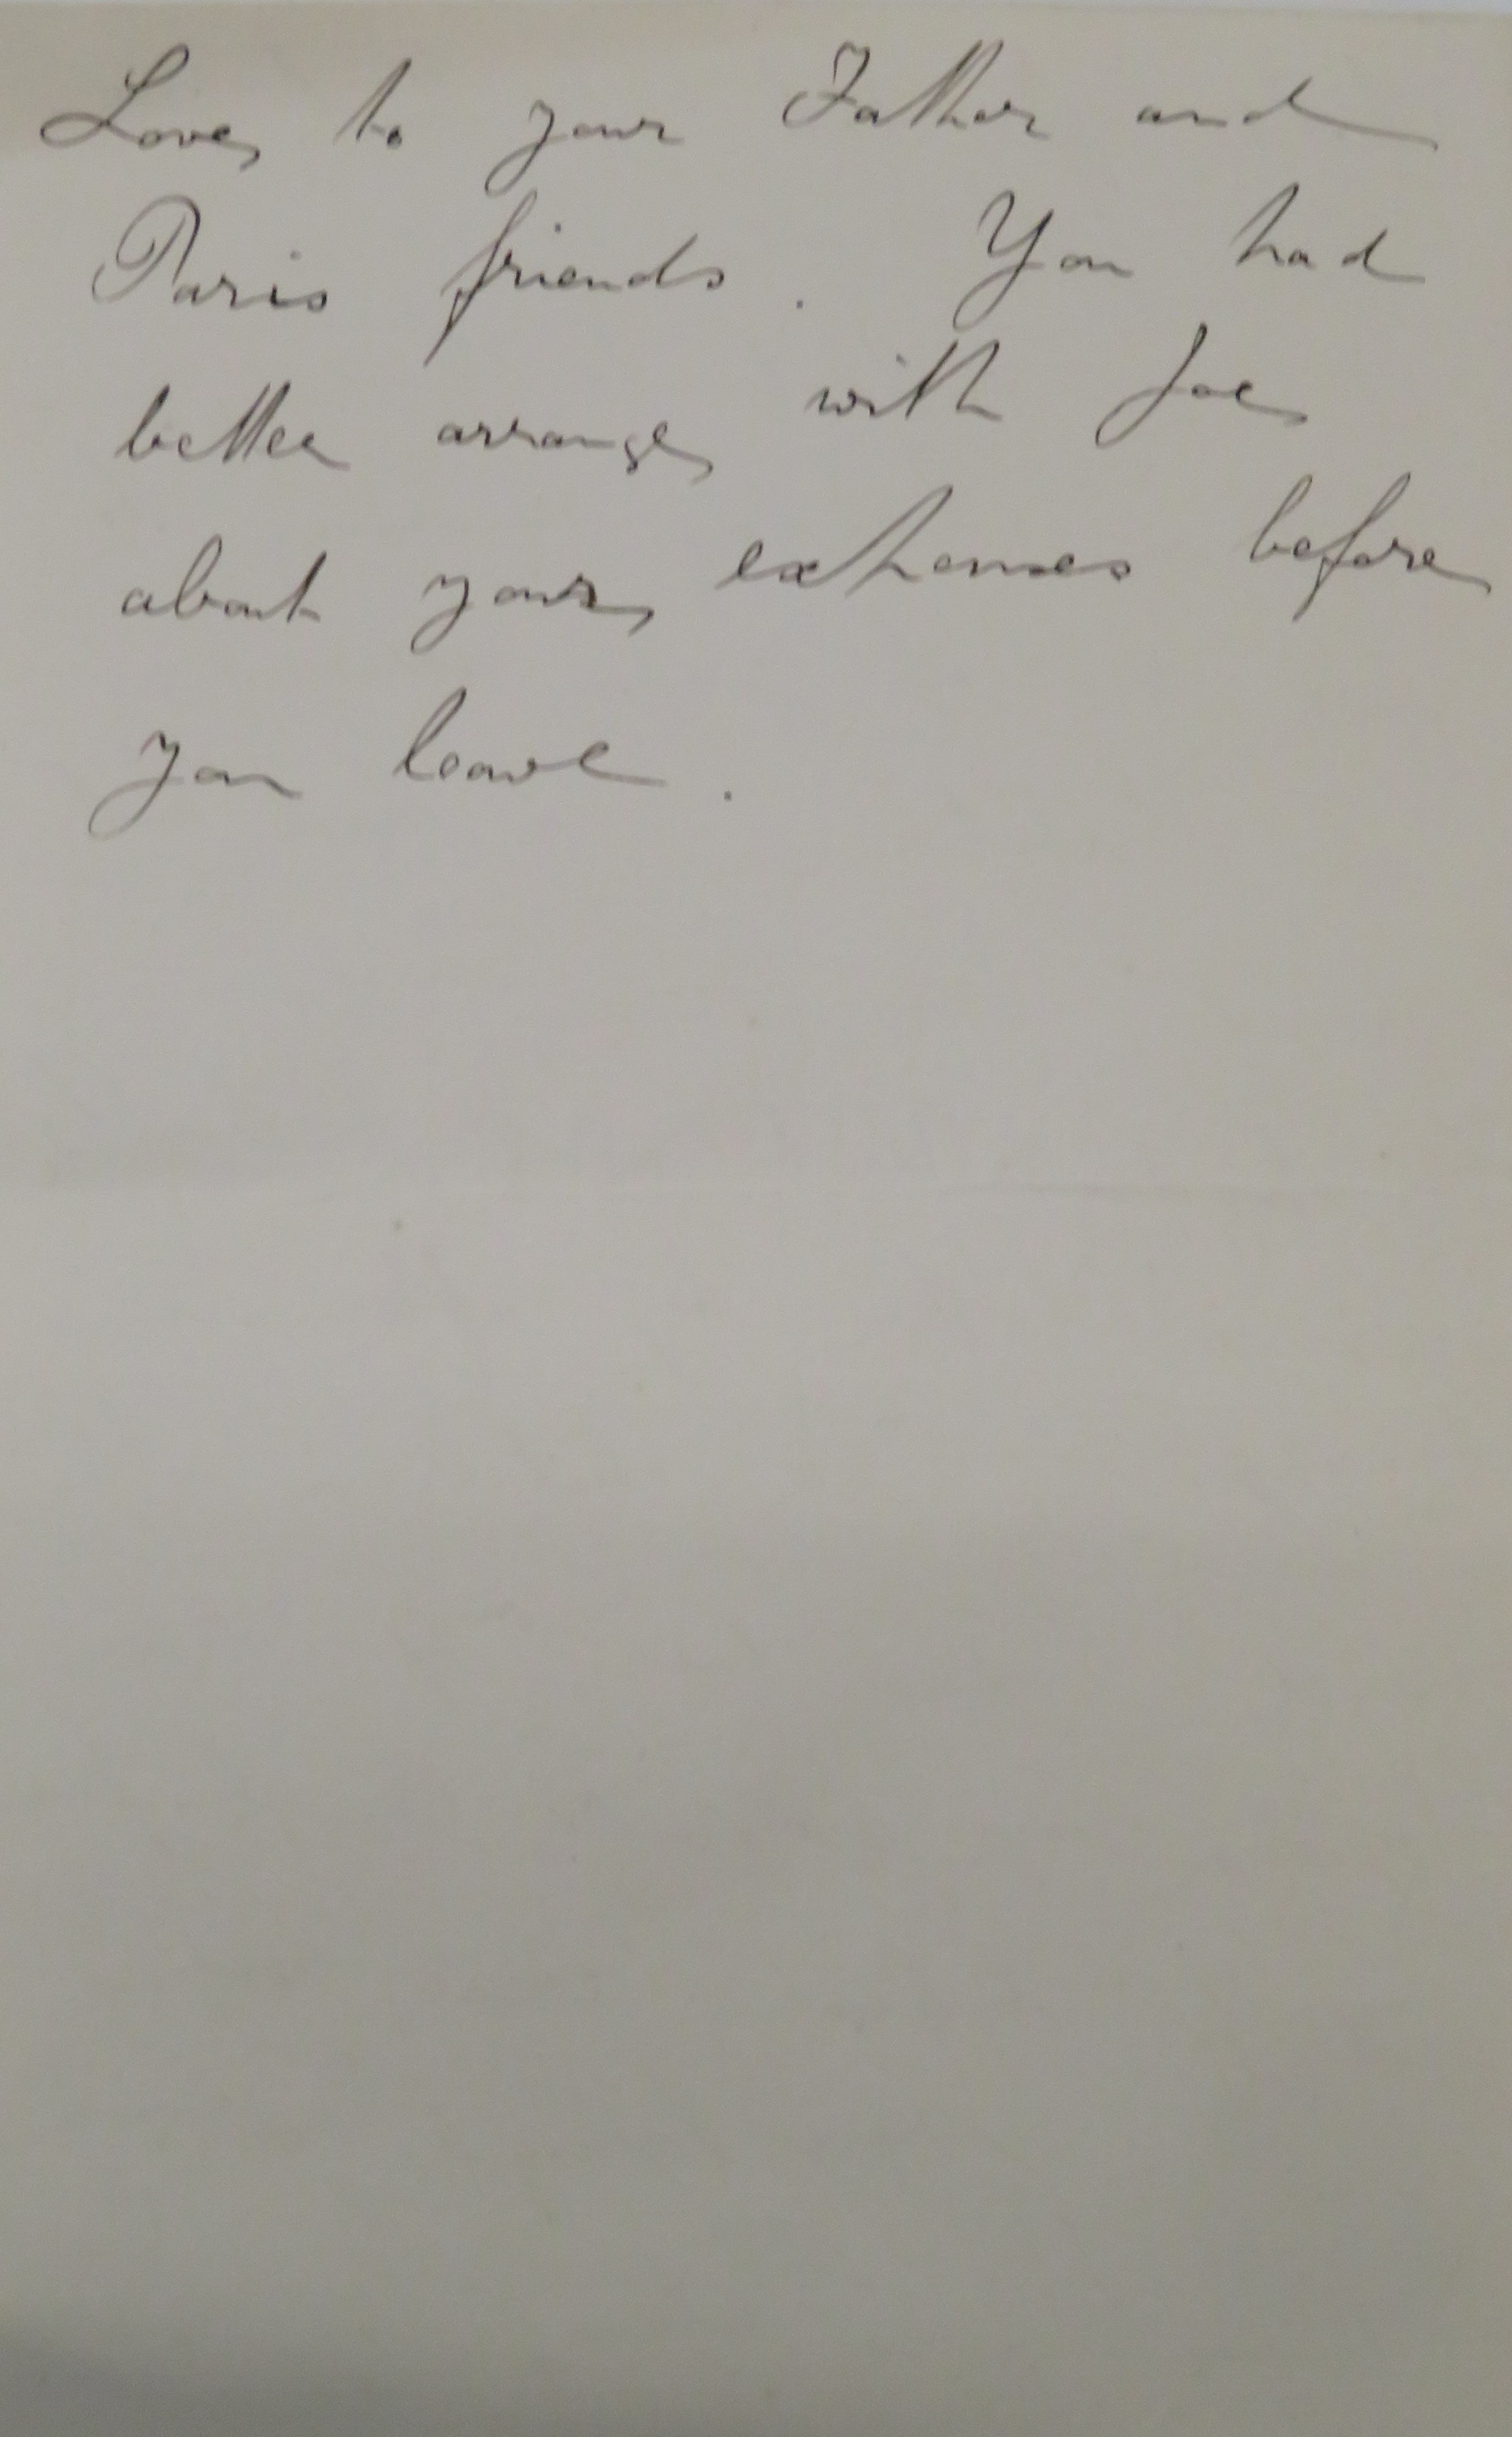 Love to your Father and
Paris friends. You had
better arrange with Joe
about your expenses before
you leave.